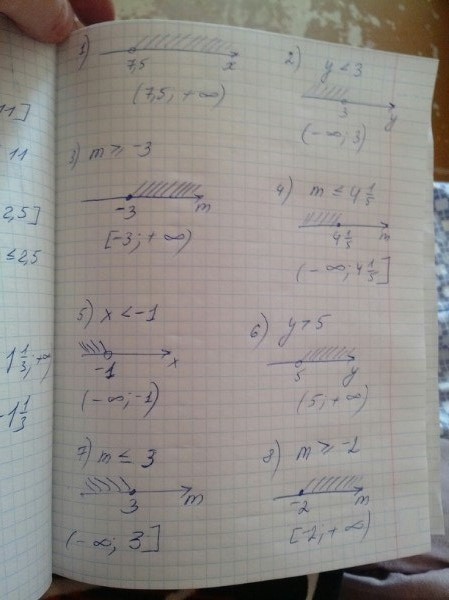 11]
11
2,5]
≤ 2,5
1 1/3; +∞
-1 1/3
1)
7,5 x
(7,5; +∞)
2) y < 3
3 y
(-∞; 3)
3) m ≥ -3
-3 m
[-3; +∞)
4) m ≤ 4 1/5
4 1/5 m
(-∞; 4 1/5]
5) x < -1
-1 x
(-∞; -1)
6) y > 5
5 y
(5; +∞)
7) m ≤ 3
3 m
(-∞; 3]
8) m ≥ -2
-2 m
[-2; +∞)